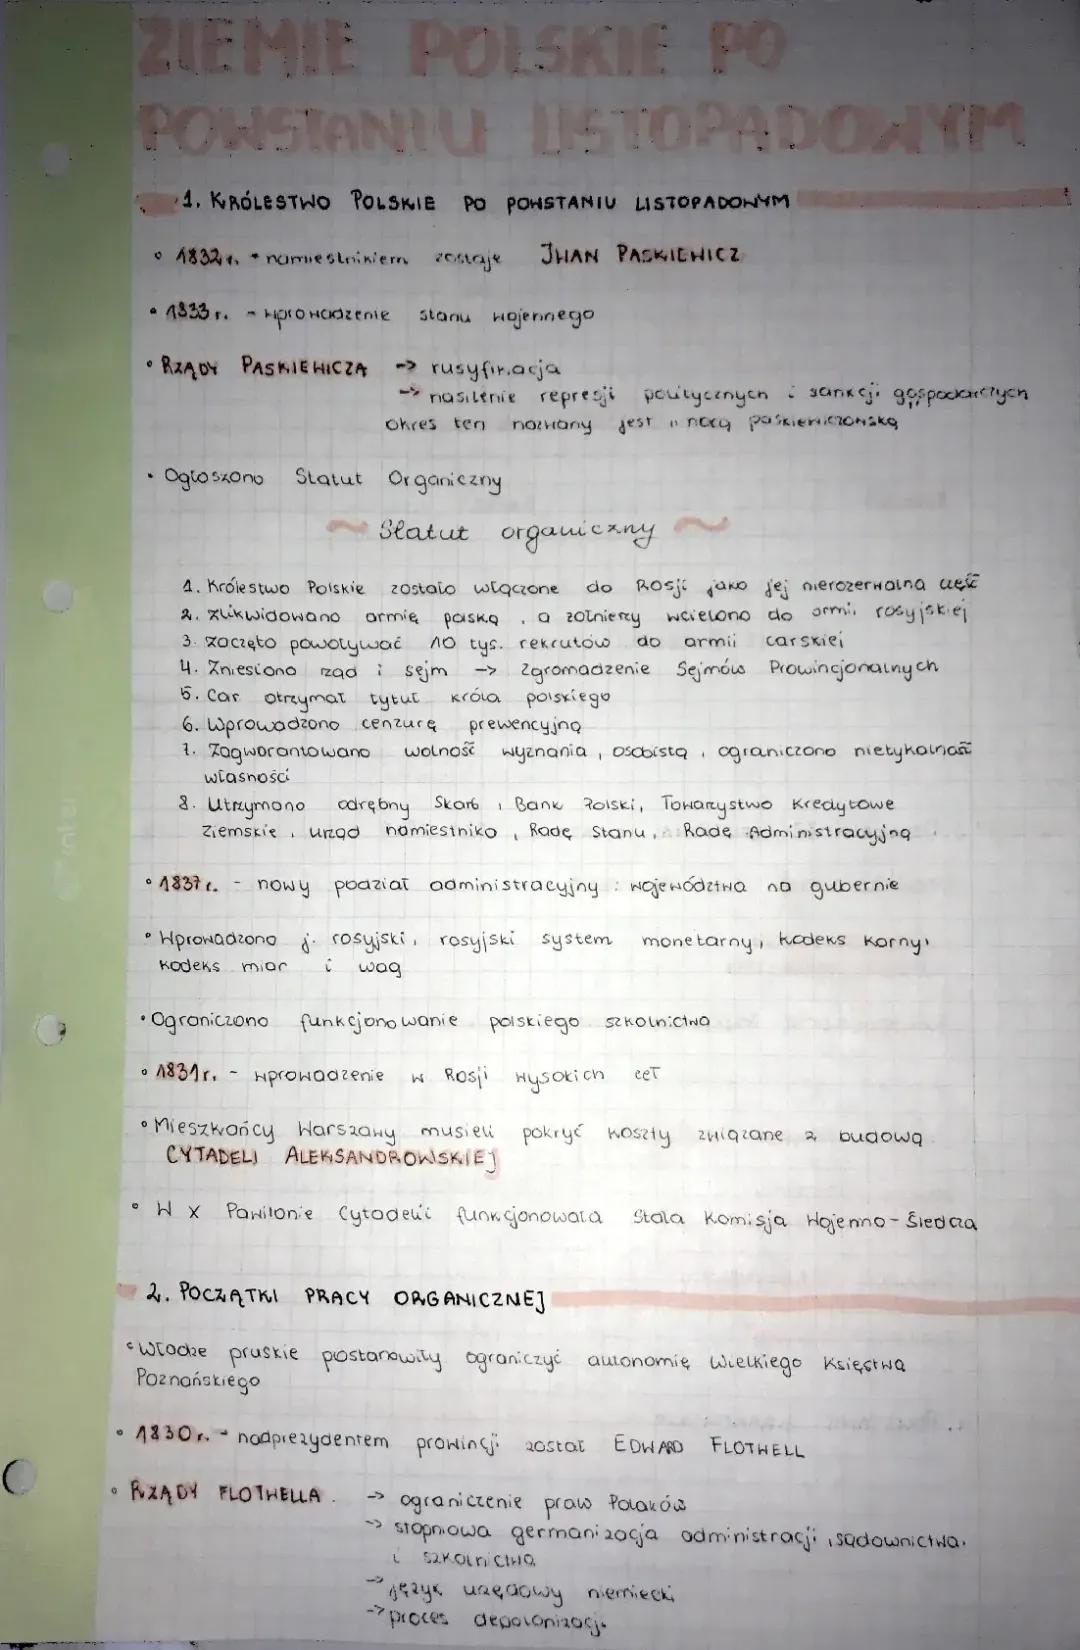 ZIEMIE POLSKIE PO
POWSTANIU LISTOPADOWYM
1. KRÓLESTWO POLSKIE PO POWSTANIU LISTOPADOWYM
• 1832 r. - namiestnikiem zostaje IWAN PASKIEWICZ
• 1833 r. - wprowadzenie stanu wojennego
• RZĄDY PASKIEWICZA -> rusyfikacja
-> nasilenie represji politycznych i sankcji gospodarczych
okres ten nazwany jest " nocą paskiewiczowską
• Ogłoszono Statut Organiczny
~ Statut organiczny ~
1. Królestwo Polskie zostało włączone do Rosji jako jej nierozerwalna część
2. Zlikwidowano armię polską, a żołnierzy wcielono do armii rosyjskiej
3. Zaczęto powoływać 10 tys. rekrutów do armii carskiej
4. Zniesiono rząd i sejm -> Zgromadzenie Sejmów Prowincjonalnych
5. Car otrzymał tytuł króla polskiego
6. Wprowadzono cenzurę prewencyjną
7. Zagwarantowano wolność wyznania, osobistą, ograniczono nietykalność
własności
8. Utrzymano odrębny Skarb, Bank Polski, Towarzystwo Kredytowe
Ziemskie, urząd namiestnika, Radę Stanu, Radę Administracyjną
• 1837 r. - nowy podział administracyjny: województwa na gubernie
• Wprowadzono j. rosyjski, rosyjski system monetarny, kodeks karny,
kodeks miar i wag
• Ograniczono funkcjonowanie polskiego szkolnictwa
• 1831 r. - wprowadzenie w Rosji wysokich ceł
• Mieszkańcy Warszawy musieli pokryć koszty związane z budową
CYTADELI ALEKSANDROWSKIEJ
• W X Pawilonie Cytadeli funkcjonowała Stała Komisja Wojenno-Śledcza
2. POCZĄTKI PRACY ORGANICZNEJ
• Władze pruskie postanowiły ograniczyć autonomię Wielkiego Księstwa
Poznańskiego
• 1830 r. - nadprezydentem prowincji został EDWARD FLOTWELL
• RZĄDY FLOTWELLA -> ograniczenie praw Polaków
-> stopniowa germanizacja administracji, sądownictwa
i szkolnictwa
-> język urzędowy niemiecki
-> proces depolonizacji